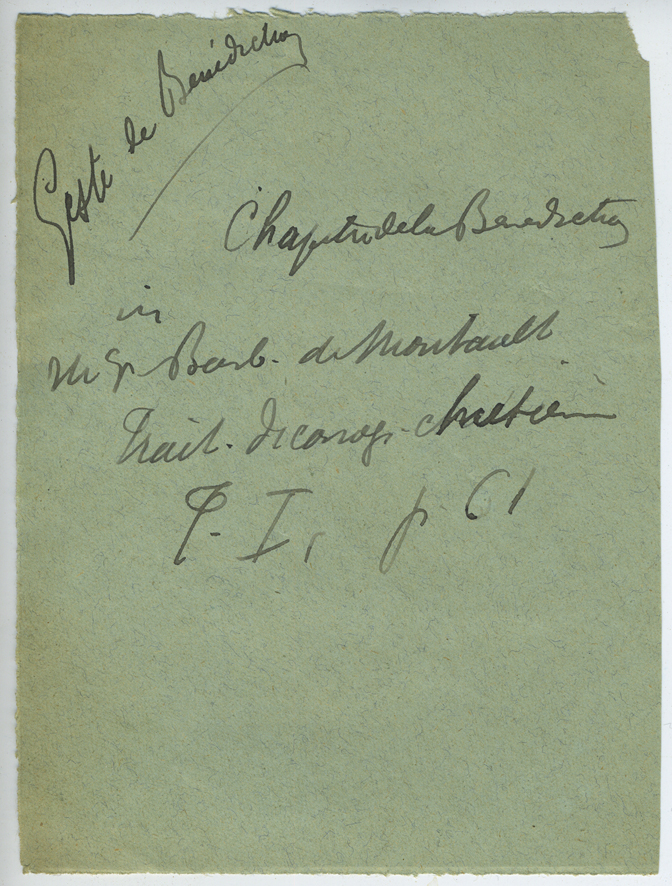 Geste de Bénédiction
Chapitre de la Bénédiction
in
Mgr Barb. de Montault
Trait. d'iconog. chrétien
T. I, p 61